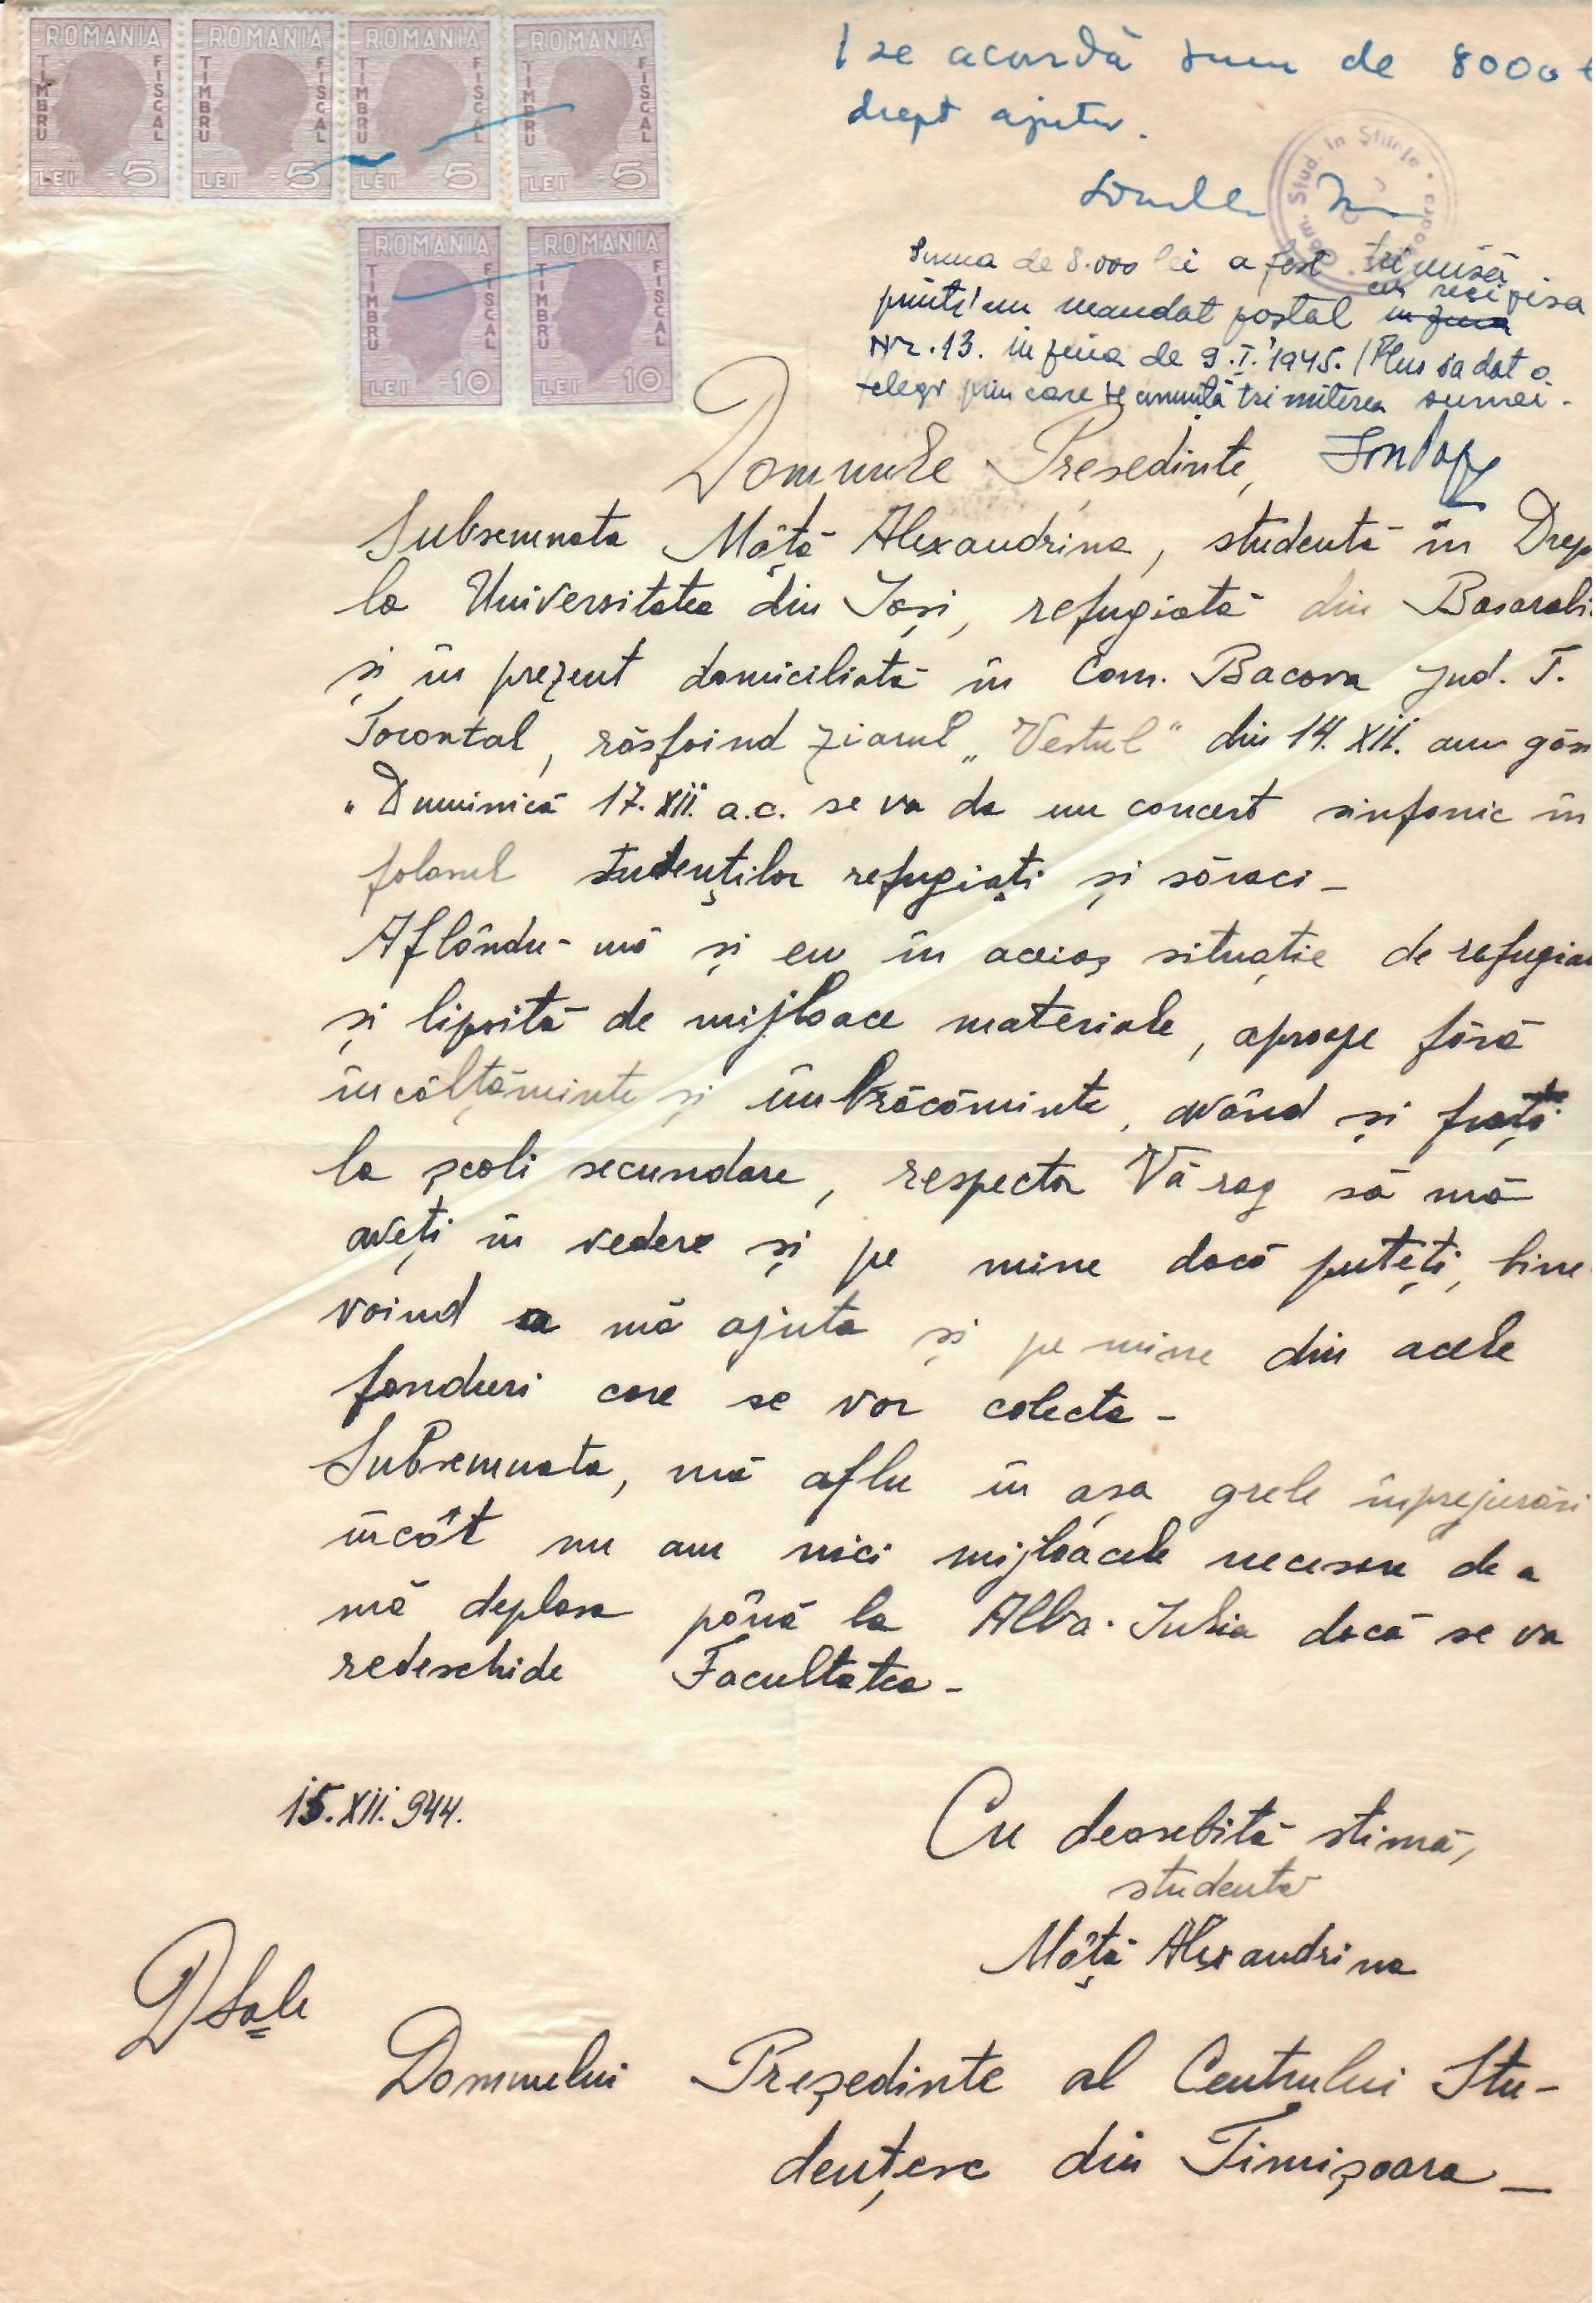 ROMANIA TIMBRU FISCAL LEI 5
ROMANIA TIMBRU FISCAL LEI 5
ROMANIA TIMBRU FISCAL LEI 5
ROMANIA TIMBRU FISCAL LEI 5
ROMANIA TIMBRU FISCAL LEI 10
ROMANIA TIMBRU FISCAL LEI 10
I se acordă suma de 8000
drept ajutor.
Stud. în Științe
Suma de 8.000 lei a fost trimisă
printr'un mandat poștal cu recipisa
Nr. 13. în ziua de 9.I.1945. / Plus s'a dat o
telegr prin care se anunță trimiterea sumei.
Domnule Președinte,
Subsemnata Mâță Alexandrina, studentă în Drep
la Universitatea din Iași, refugiată din Basarabi
și în prezent domiciliată în Com. Bacova Jud. T.
Torontal, răsfoind ziarul „Vestul" din 14.XII. am găs
„Duminică 17.XII. a.c. se va da un concert sinfonic în
folosul studenților refugiați și săraci -
Aflându-mă și eu în aceiaș situație de refugia
și lipsită de mijloace materiale, aproape fără
încălțăminte și îmbrăcăminte, având și frați
la școli secundare, respectos Vă rog să mă
aveți în vedere și pe mine dacă puteți, bine
voind a mă ajuta și pe mine din acele
fonduri care se vor colecta -
Subsemnata, mă aflu în așa grele împrejurări
încât nu am nici mijloacele necesare de a
mă deplasa până la Alba-Iulia dacă se va
redeschide Facultatea -
15.XII.944.
Cu deosebită stimă,
studenta
Mâță Alexandrina
D Sale
Domnului Președinte al Centrului Stu-
dențesc din Timișoara -